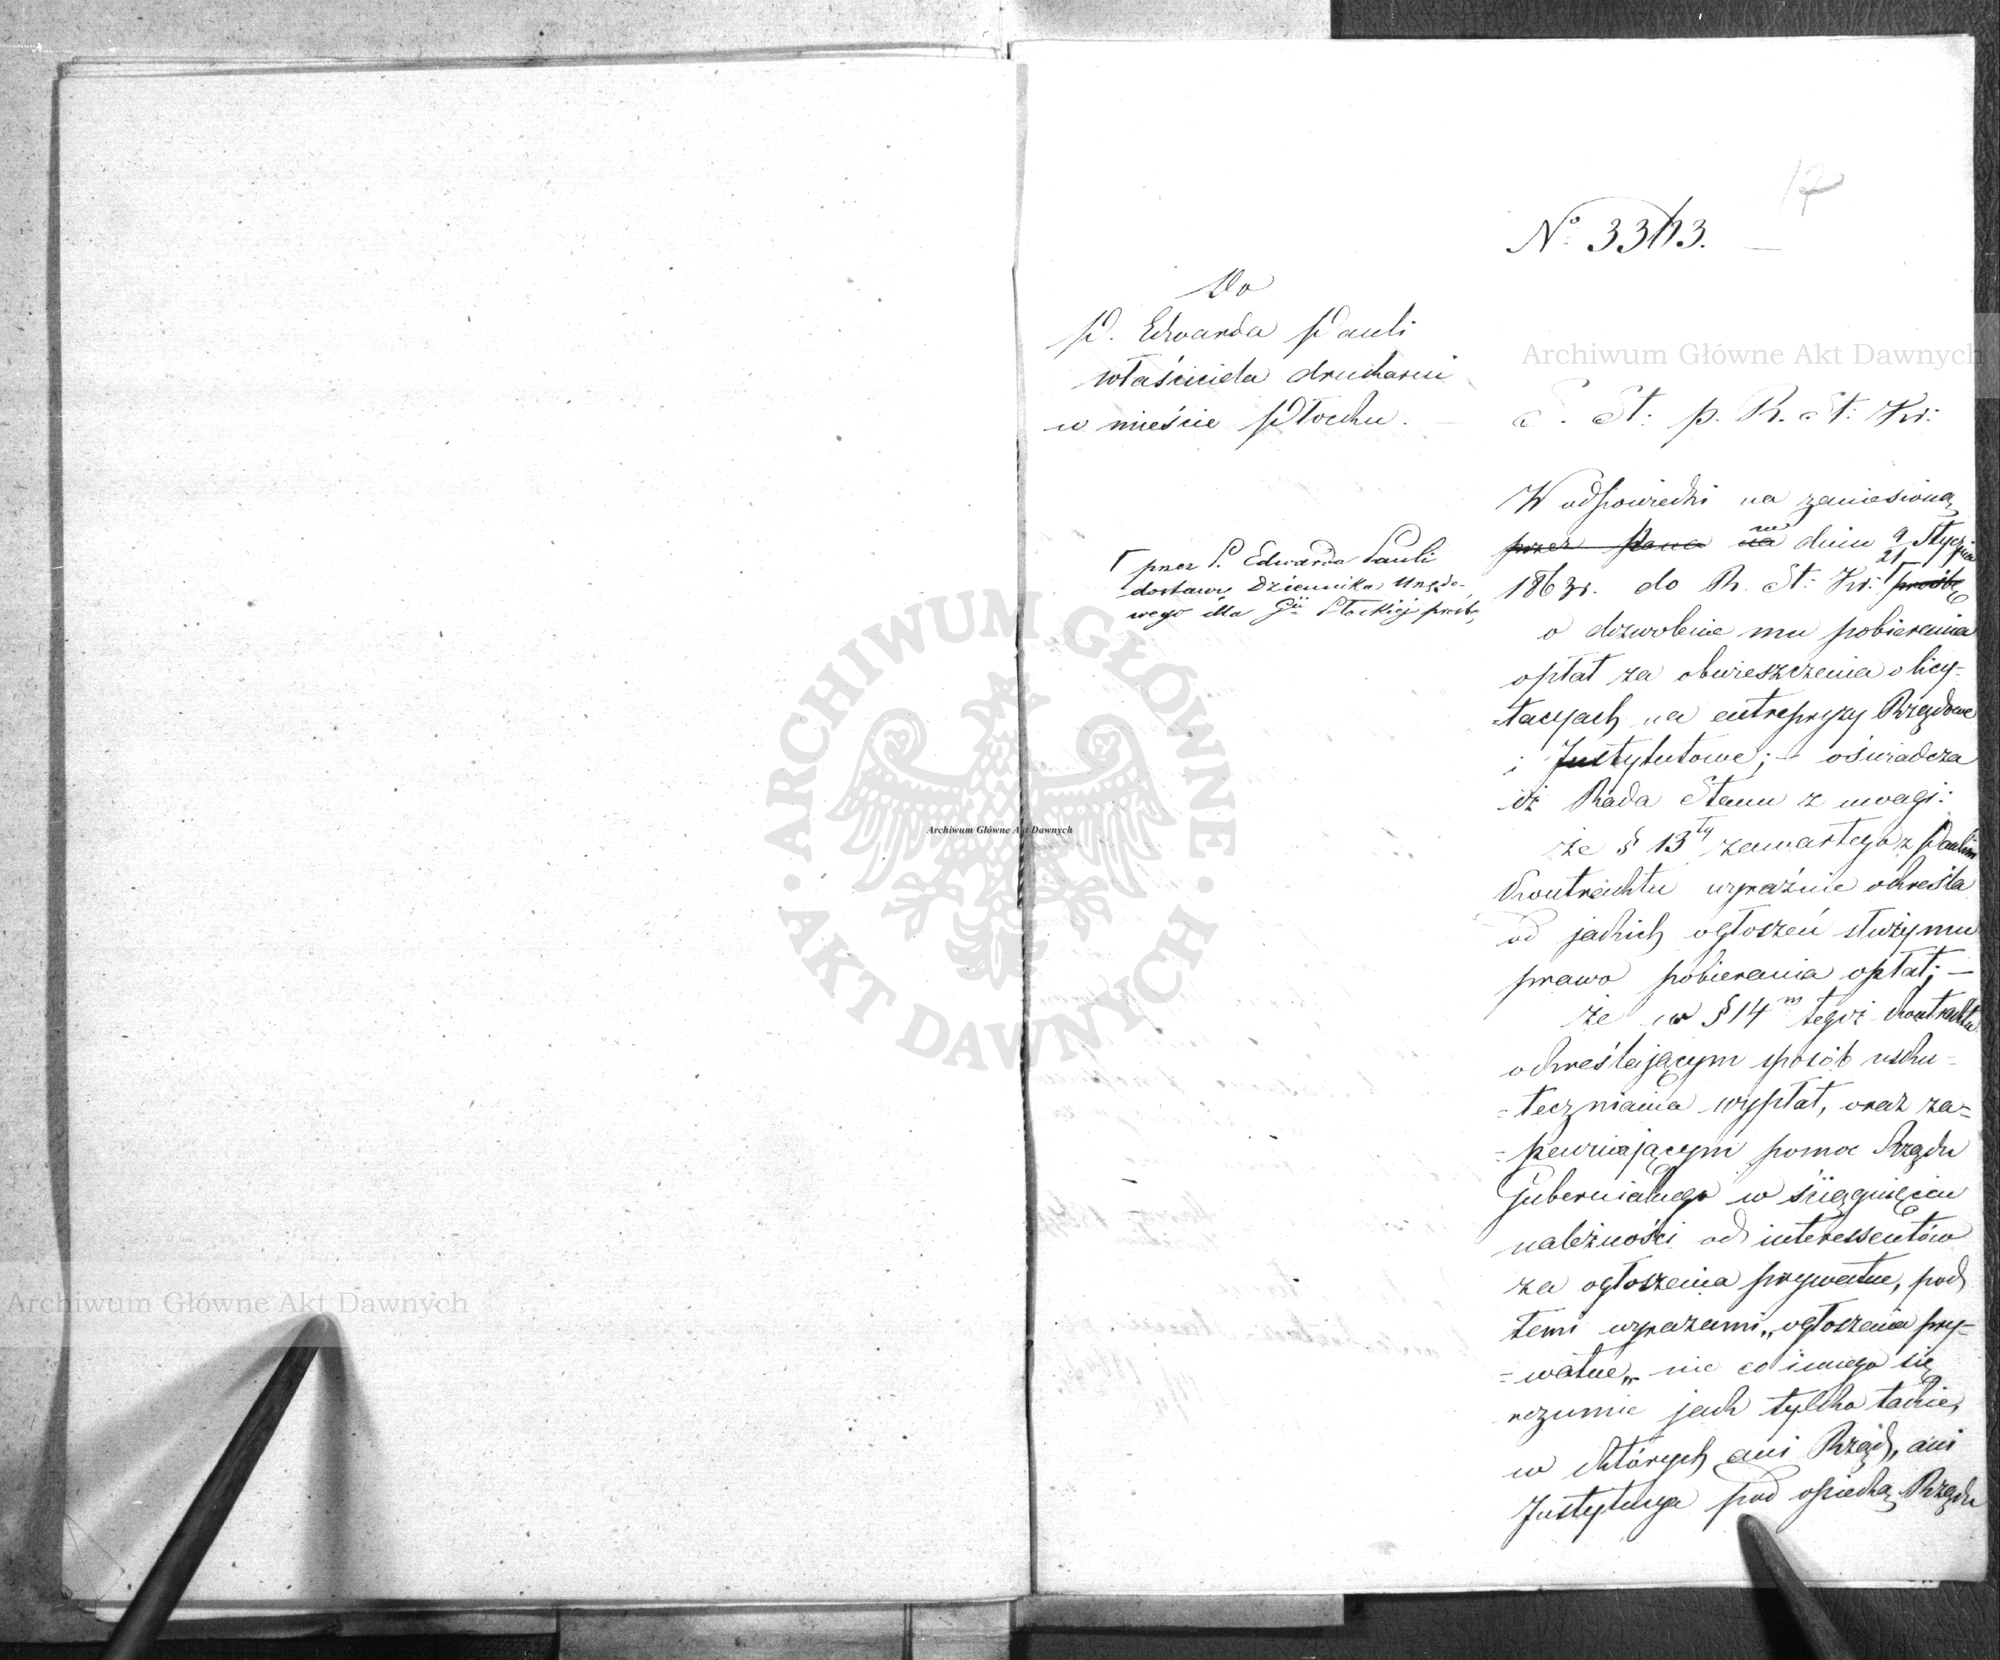 17
Nº 3343.
Do
P. Edwarda Pauli
właściciela drukarni
w mieście Płocku.
S. St: p. R. St: Kr:
W odpowiedzi na zaniesioną
przez Pana na w dniu 9/21 Stycznia
1863 r. do R. St: Kr: prośbę
⌈ przez P. Edwarda Pauli
dostawcę Dziennika Urzędo-
wego dla Gii Płockiej prośbę
o dozwolenie mu pobierania
opłat za obwieszczenia o licy-
-tacyach na entrepryzy Rządowe
i Instytutowe; – oświadcza
iż Rada Stanu z uwagi:
że § 13ty zawartego z Paulim
Kontraktu wyraźnie określa
od jakich ogłoszeń służy mu
prawo pobierania opłat; —
że w § 14m tegoż kontraktu
określającym sposób usku-
-teczniania wypłat, oraz za-
-pewniającym pomoc Rządu
Gubernialnego w ściągnięciu
należności od interessentów
za ogłoszenia prywatne, pod
temi wyrazami „ogłoszenia pry-
-watne„ nic co innego się
rozumie jak tylko takie,
w których ani Rząd, ani
Instytucya pod opieką Rządu
Archiwum Główne Akt Dawnych
Archiwum Główne Akt Dawnych
Archiwum Główne Akt Dawnych
ARCHIWUM GŁÓWNE · AKT DAWNYCH ·